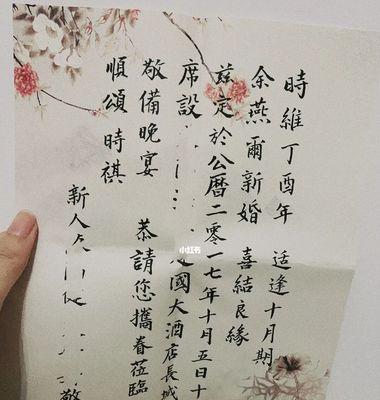 時維丁酉年 适逢十月期
余燕爾新婚 喜結良緣
兹定於公曆二零一七年十月五日十
席設 國大酒店長城
敬備晚宴 恭請您攜眷莅臨
順頌時祺
新人 敬
小红书